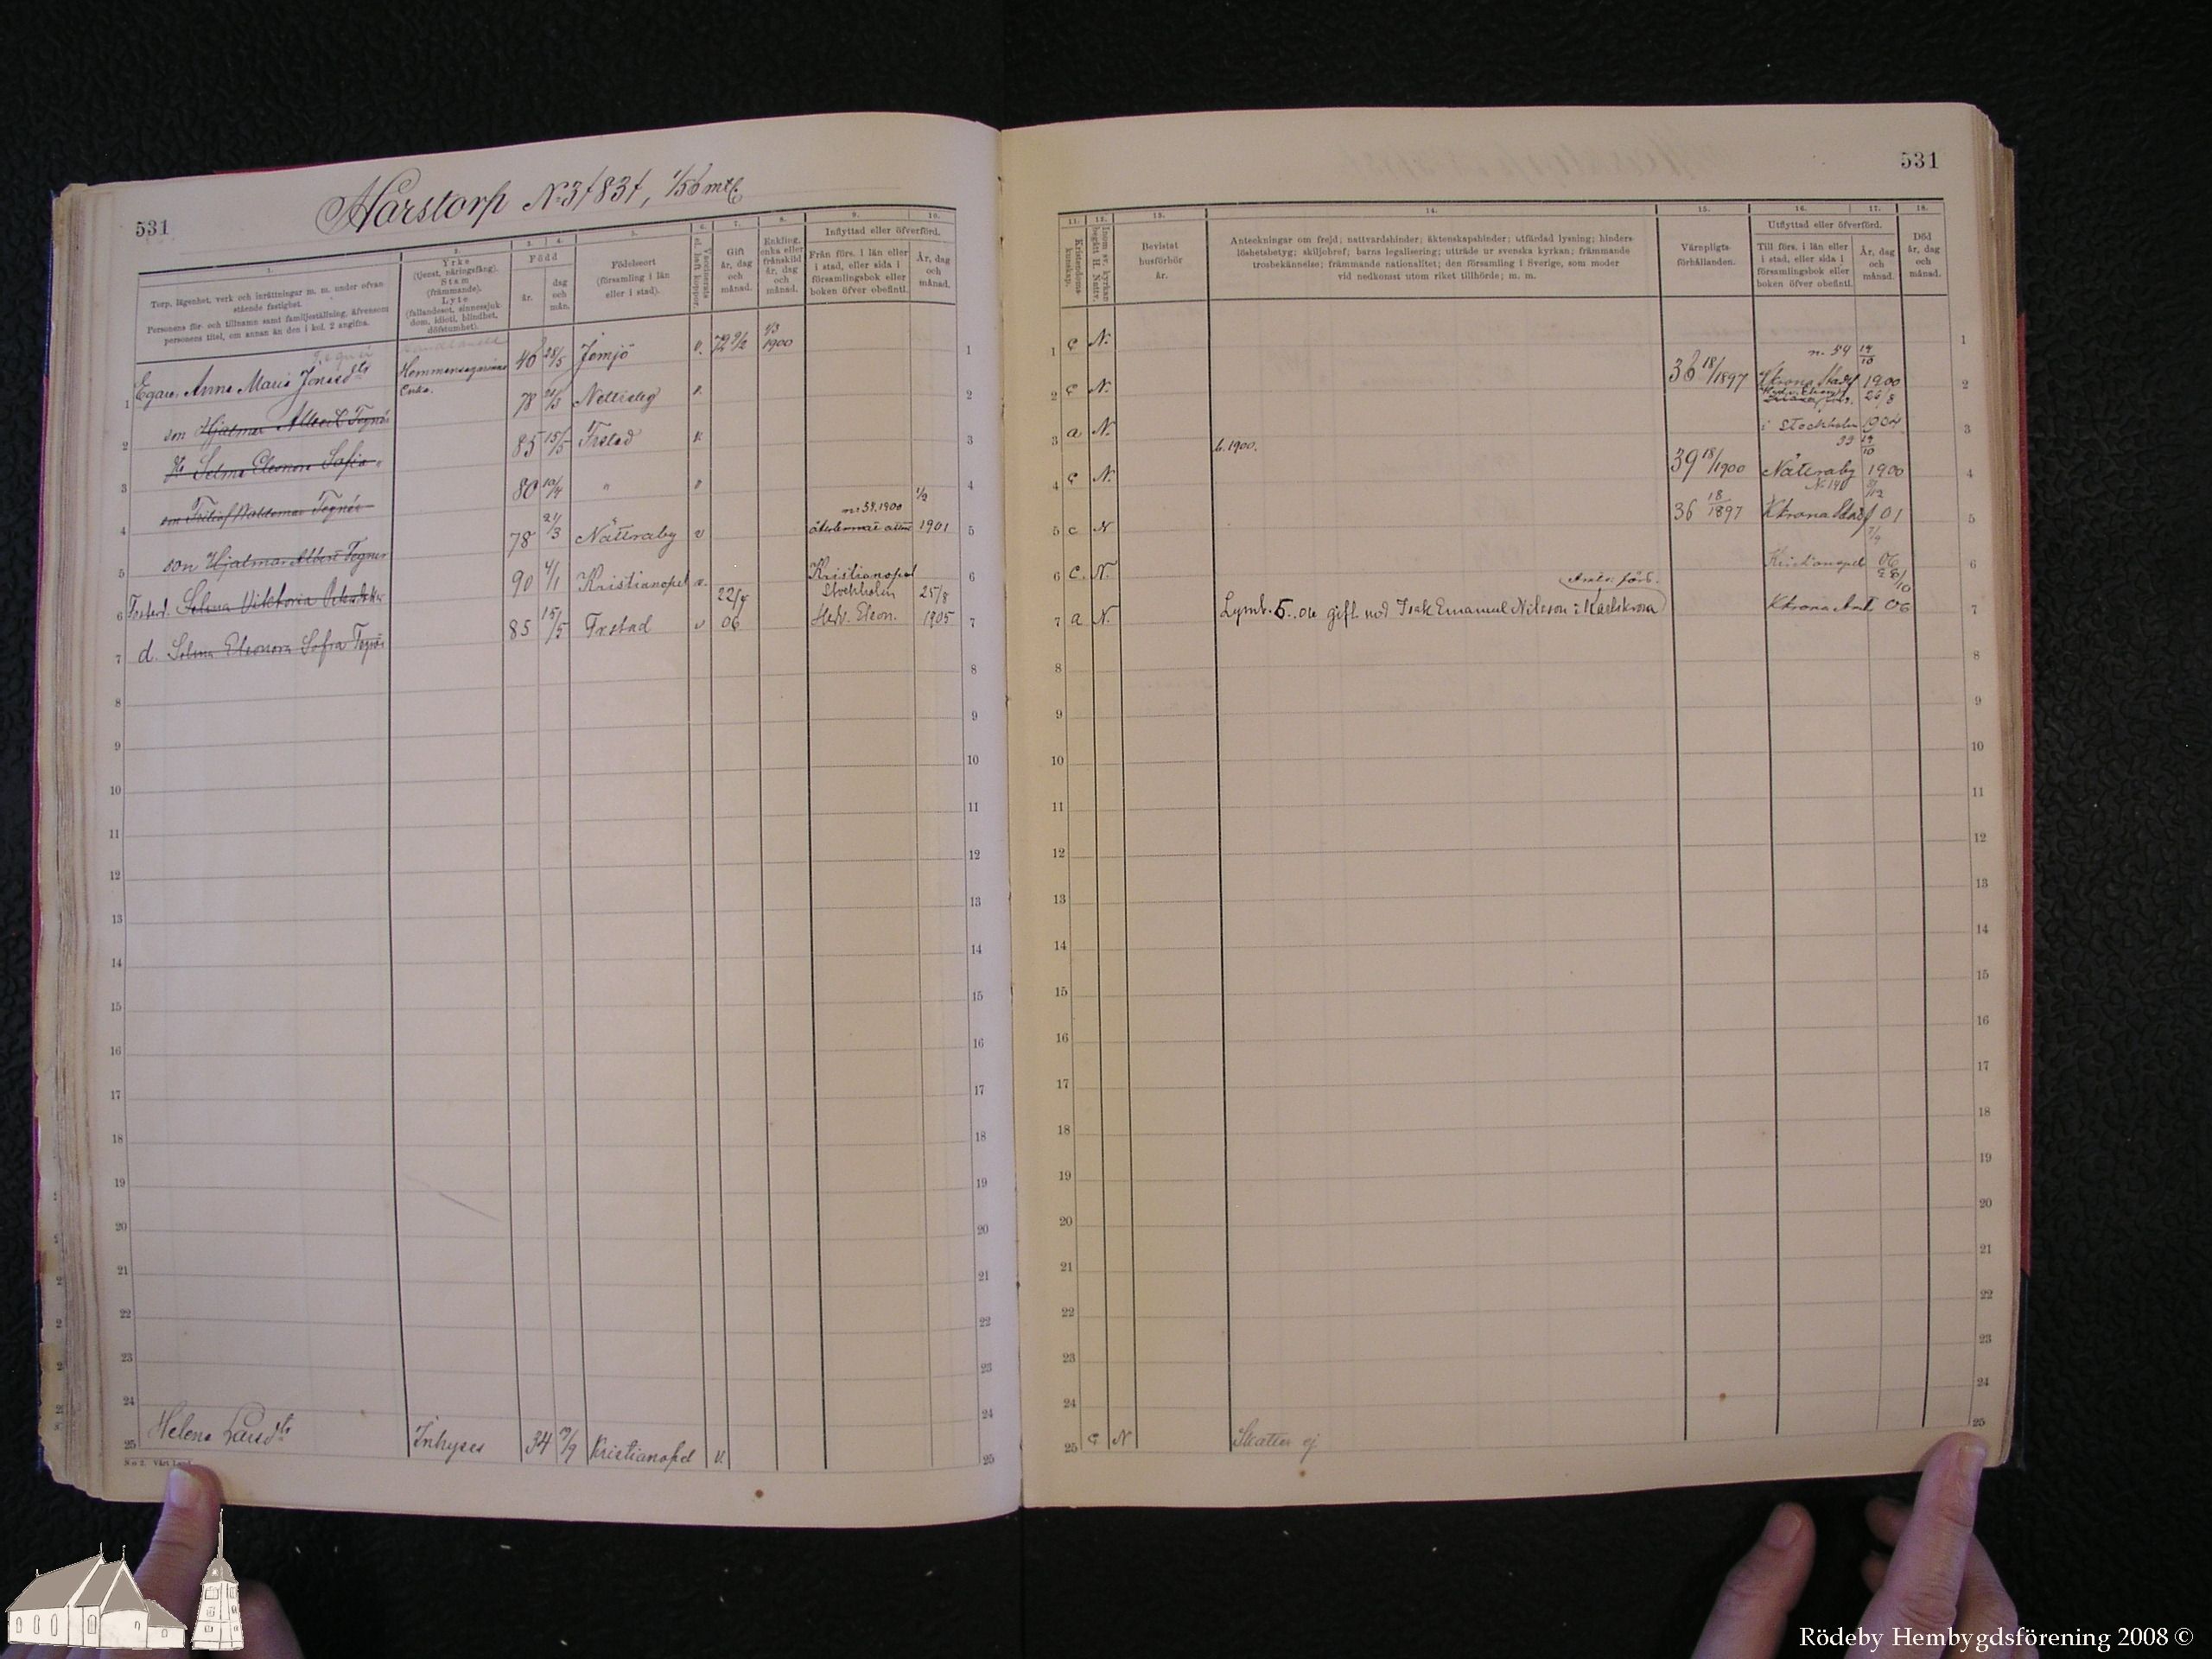 531
Hårstorp No 3783
1.
Torp, lägenhet, verk och inrättningar m. m. under ofvanstående fastighet.
Personens för- och tillnamn samt familjeställning, äfvensom personens titel, om annan än den i kol. 2 angifna.
2.
Yrke
(tjenst, näringsfång).
Stam
(främmande).
Lyte
(fallandesot, sinnessjukdom, idioti, blindhet, döfstumhet).
3. 4.
Född
år.
dag och mån.
5.
Födelseort
(församling i län eller i stad).
6.
Vaccinerats el. haft koppor.
7.
Gift
år, dag och månad.
8.
Enkling, enka eller frånskild år, dag och månad.
9. 10.
Inflyttad eller öfverförd.
Från förs. i län eller i stad, eller sida i församlingsbok eller boken öfver obefintl.
År, dag och månad.
1 Anna Maria Jonsdtr Hemmansegarinna 28/5 Jemjö v. 1900 1
Enka.
2 son Hjalmar Albert Tegnér 78 21/3 Nettraby v. 2
3 Selma Eleonora Sofia 85 15/5 Frstad v. 3
4 son Fritiof Waldemar Tegnér 80 " v 4
5 son Hjalmar Albert Tegnér 78 21/3 Nättraby v 1901 5
6 Fosterd. Selma Viktoria 90 4/1 Kristianopel v. Kristianopel 6
7 d. Selma Eleonora Sofia Tegnér 85 15/5 Frstad v 22/4 06 Stockholm Hedv. Eleon. 25/8 1905 7
8
9
10
11
12
13
14
15
16
17
18
19
20
21
22
23
24
25 Helena Larsdtr Inhyses 34 Kristianopel v. 25
No 2. Vårt Land
531
11.
Kristendomskunskap.
12.
Inom sv. kyrkan begått H. Nattv.
13.
Bevistat husförhör år.
14.
Anteckningar om frejd; nattvardshinder; äktenskapshinder; utfärdad lysning; hinderslöshetsbetyg; skiljobref; barns legalisering; utträde ur svenska kyrkan; främmande trosbekännelse; främmande nationalitet; den församling i Sverige, som moder vid nedkomst utom riket tillhörde; m. m.
15.
Värnpligtsförhållanden.
16. 17.
Utflyttad eller öfverförd.
Till förs. i län eller i stad, eller sida i församlingsbok eller boken öfver obefintl.
År, dag och månad.
18.
Död år, dag och månad.
1 c N. 1
2 c N. 36 18/1897 Kkrona Stadsf 1900 2
3 a N. b. 1900. i Stockholm 1904 3
4 c N. 39 18/1900 Nättraby 1900 4
5 c N 36 18/1897 Kkrona Stadsf 01 5
6 c. N. Kristianopel 06 6
7 a N. Lysn. 5. 06 gift med Isak Emanuel Nilsson i Karlskrona Amts förs. Kkrona Amt 06 7
8
9
10
11
12
13
14
15
16
17
18
19
20
21
22
23
24
25 c N Skatter ej 25
Rödeby Hembygdsförening 2008 ©